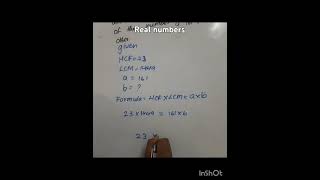 of the number is 161
other
Real numbers
given
HCF = 23
LCM = 1449
a = 161
b = ?
Formula = HCF x LCM = a x b
23 x 1449 = 161 x b
23 x
InShOt